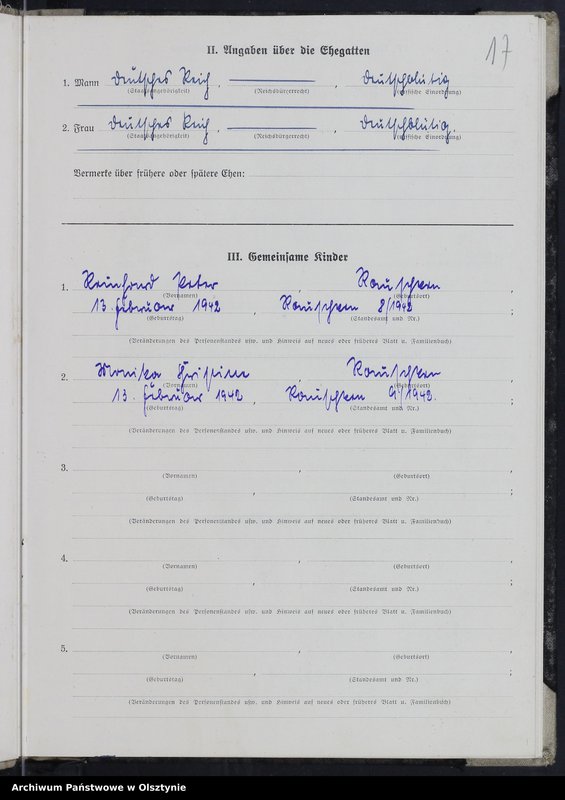 17
II. Angaben über die Ehegatten
1. Mann Deutsches Reich, ——, deutschblütig
(Staatsangehörigkeit) (Reichsbürgerrecht) (rassische Einordnung)
2. Frau Deutsches Reich, ——, deutschblütig.
(Staatsangehörigkeit) (Reichsbürgerrecht) (rassische Einordnung)
Vermerke über frühere oder spätere Ehen:
III. Gemeinsame Kinder
1. Reinhard Peter, Rauschken,
(Vornamen) (Geburtsort)
13. Februar 1942, Rauschken 8/1942;
(Geburtstag) (Standesamt und Nr.)
(Veränderungen des Personenstandes usw. und Hinweis auf neues oder früheres Blatt u. Familienbuch)
2. Monika Christine, Rauschken,
(Vornamen) (Geburtsort)
13. Februar 1942, Rauschken 9/1942.;
(Geburtstag) (Standesamt und Nr.)
(Veränderungen des Personenstandes usw. und Hinweis auf neues oder früheres Blatt u. Familienbuch)
3. , ,
(Vornamen) (Geburtsort)
, ;
(Geburtstag) (Standesamt und Nr.)
(Veränderungen des Personenstandes usw. und Hinweis auf neues oder früheres Blatt u. Familienbuch)
4. , ,
(Vornamen) (Geburtsort)
, ;
(Geburtstag) (Standesamt und Nr.)
(Veränderungen des Personenstandes usw. und Hinweis auf neues oder früheres Blatt u. Familienbuch)
5. , ,
(Vornamen) (Geburtsort)
, ;
(Geburtstag) (Standesamt und Nr.)
(Veränderungen des Personenstandes usw. und Hinweis auf neues oder früheres Blatt u. Familienbuch)
Archiwum Państwowe w Olsztynie